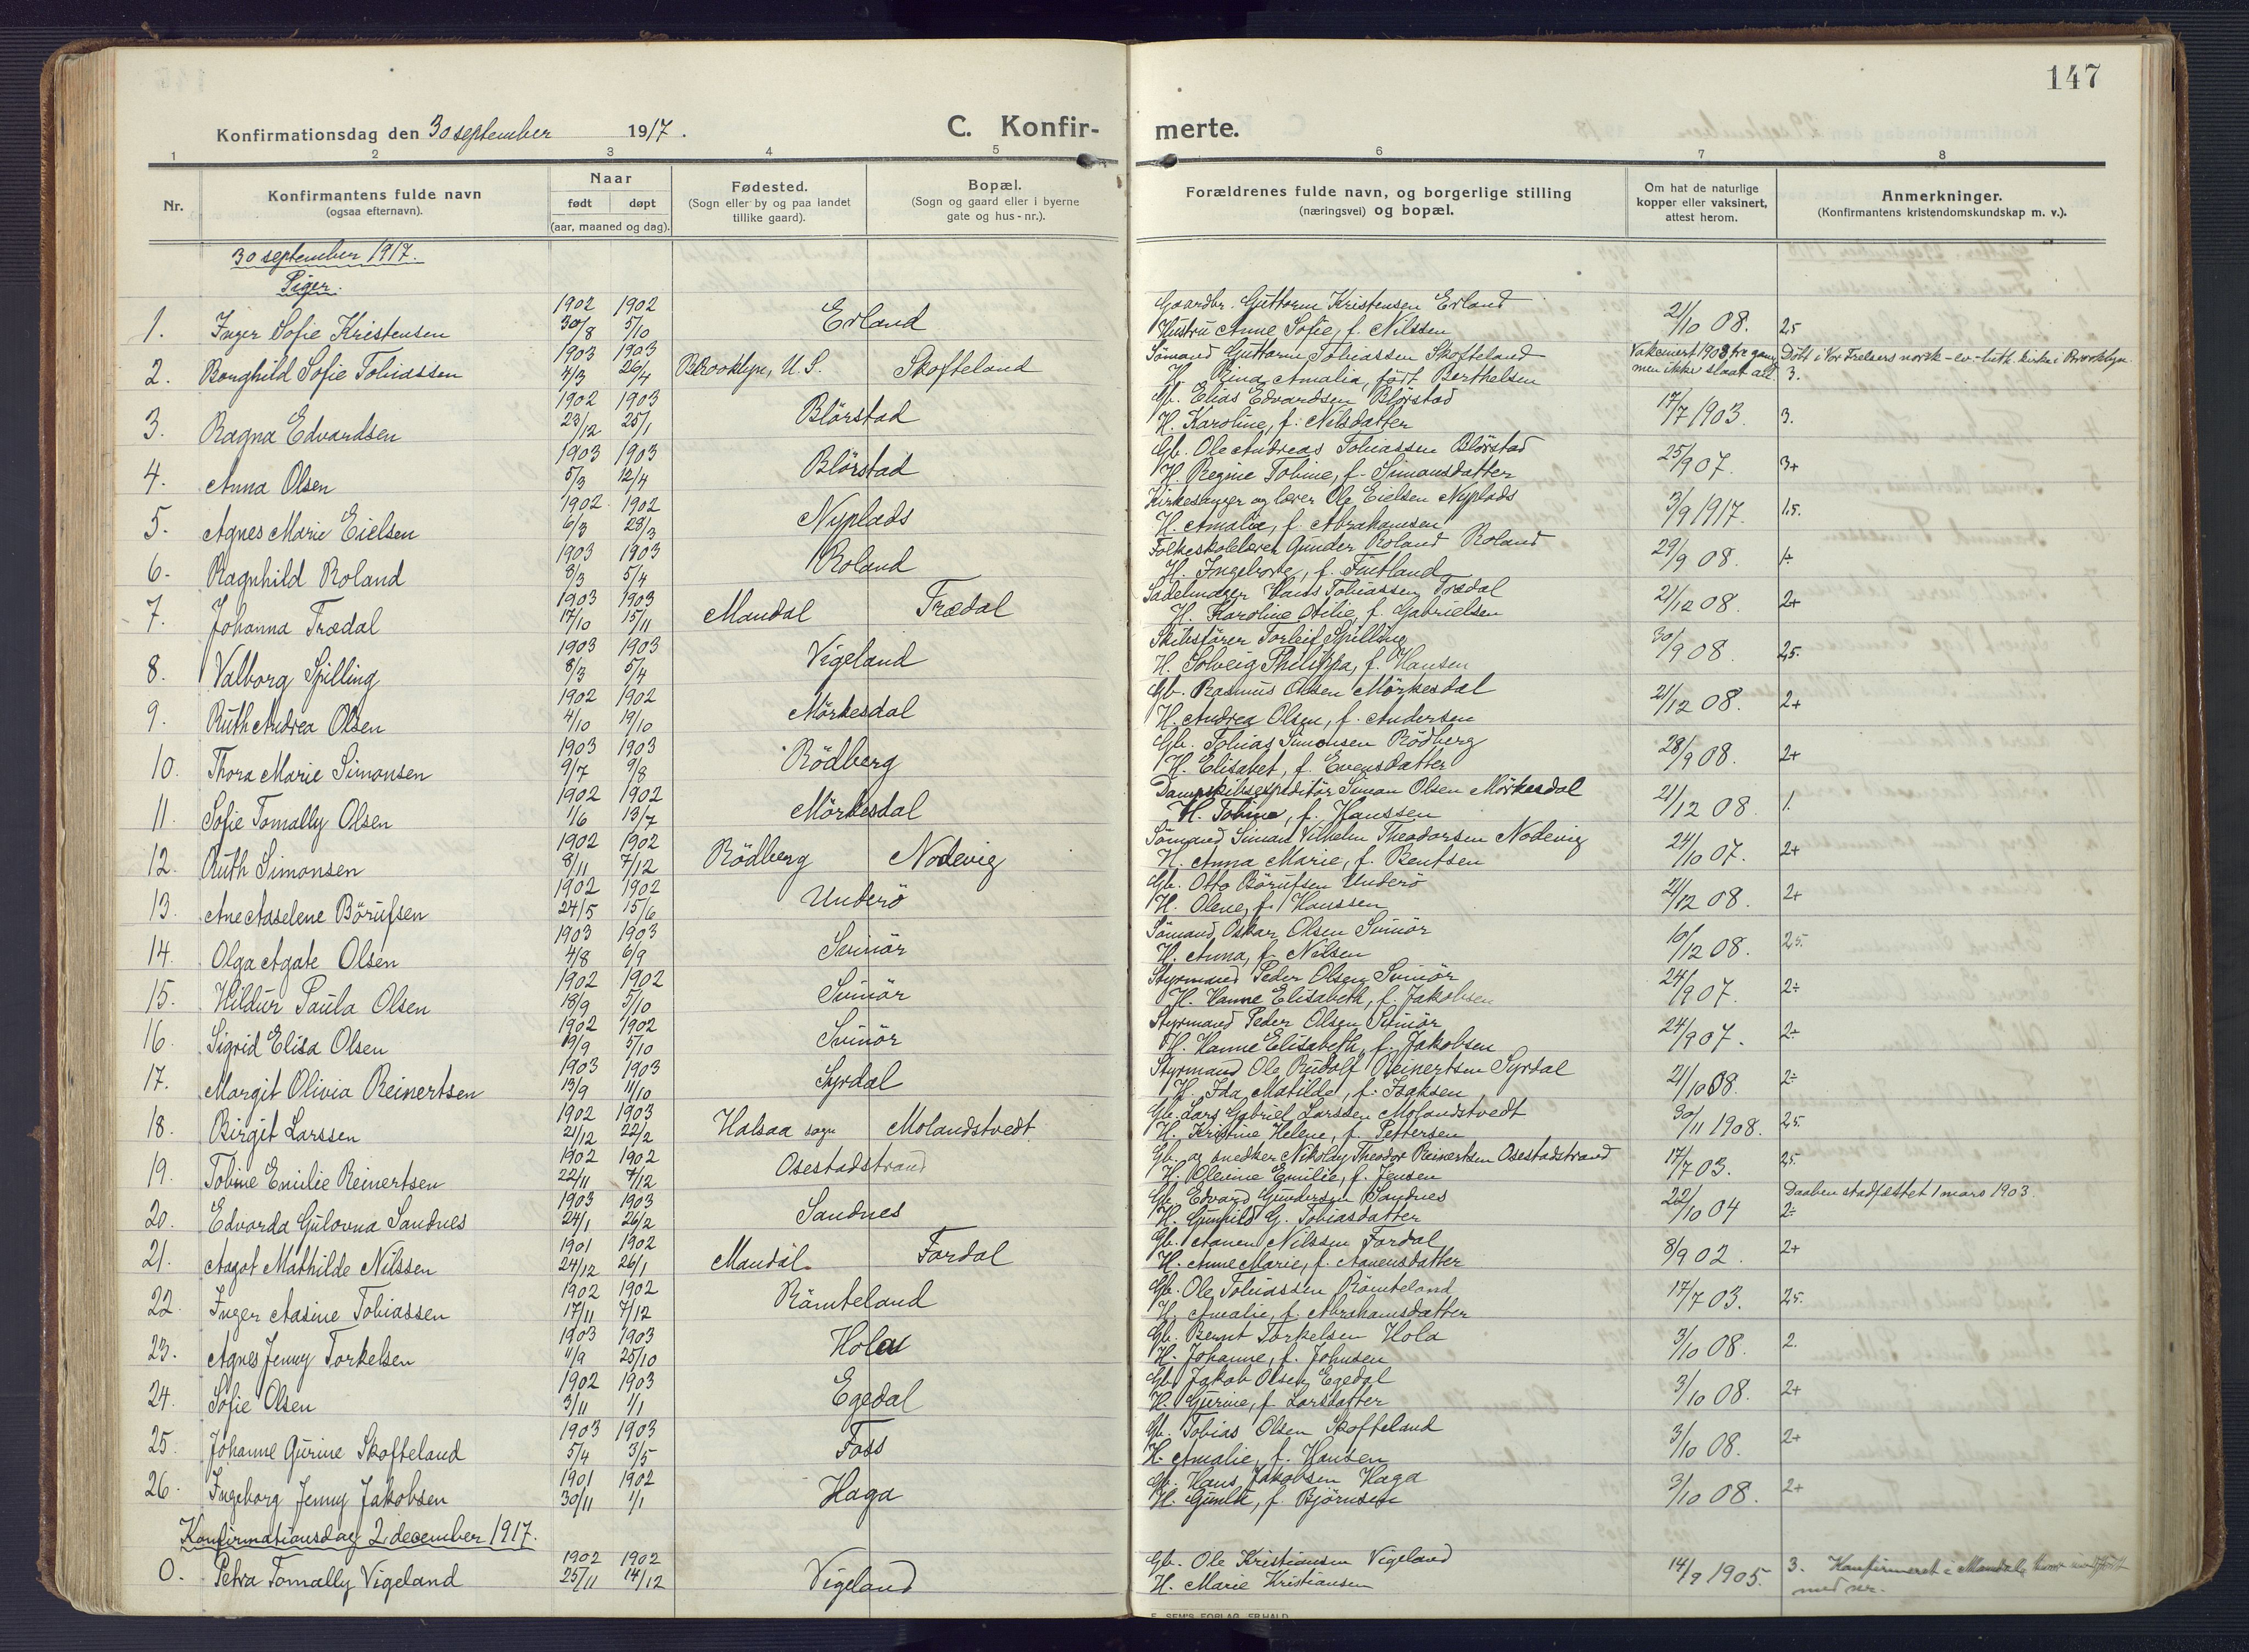 147
Konfirmationsdag den 30 september 1917.
C. Konfir-
merte.
1 2 3 4 5 6 7 8
Nr.
Konfirmantens fulde navn
(ogsaa efternavn).
Naar
født døpt
(aar, maaned og dag).
Fødested.
(Sogn eller by og paa landet
tillike gaard).
Bopæl.
(Sogn og gaard eller i byerne
gate og hus-nr.).
Forældrenes fulde navn, og borgerlige stilling
(næringsvei) og bopæl.
Om hat de naturlige
kopper eller vaksinert,
attest herom.
Anmerkninger.
(Konfirmantens kristendomskundskap m. v.).
30 september 1917.
Piger.
1902 1902 Gaardbr. Guttorm Kristensen Erland
1. Inger Sofie Kristensen 30/8 5/10 Erland Hustru Anne Sofie, f. Nilssen 21/10 08. 2,5
1903 1903 Sömand Guttorm Tobiassen Skofteland Vaksinert 1908 tre gang Döbt i Vor Frelsers norsk-ev-luth. kirke i Brooklyn.
2. Borghild Sofie Tobiassen 4/3 26/4 Brooklyn, U.S. Skofteland H. Rina Amalia, født Berthelsen men ikke slaat an. 3.
1902 1903 Gb. Elias Edvardsen Blörstad
3. Ragna Edvardsen 23/12 25/1 Blörstad H. Karoline, f. Nilsdatter 17/7 1903. 3.
1903 1903 Gb. Ole Andreas Tobiassen Blörstad
4. Anna Olsen 5/3 12/4 Blörstad H. Regine Tobine, f. Simonsdatter 25/9 07. 3+
1902 1902 Kirkesanger og lærer Ole Eielsen Nyplads
5. Agnes Marie Eielsen 6/3 28/3 Nyplads H. Amalie, f. Abrahamsen 3/9 1917. 1,5.
1903 1903 Folkeskolelærer Gunder Roland Roland
6. Ragnhild Roland 8/3 5/4 Roland H. Ingeborg, f. Fintland 29/9 08. 1÷
1903 1903 Sadelmager Hans Tobiassen Trædal
7. Johanna Trædal 17/10 15/11 Mandal Trædal H. Karoline Otilie, f. Gabrielsen 21/12 08. 2+
1903 1903 Skibsförer Torleif Spilling
8. Valborg Spilling 8/3 5/4 Vigeland H. Solveig Philippa, f. Hansen 30/9 08. 2,5.
1902 1902 Gb. Rasmus Olsen Mörkesdal
9. Ruth Andrea Olsen 4/10 19/10 Mörkesdal H. Andrea Olsen, f. Andersen 21/12 08. 2+
1903 1903 Gb. Tobias Simonsen Rödberg
10. Thora Marie Simonsen 9/7 9/8 Rödberg H. Elisabet, f. Evensdatter 28/9 08. 2+
1902 1902 Dampskibsexpeditör Simon Olsen Mörkesdal
11. Sofie Tomally Olsen 1/6 13/7 Mörkesdal H. Tobine, f. Hanssen 21/12 08. 1.
1902 1902 Sömand Simon Vilhelm Theodorsen Nodevig
12. Ruth Simonsen 8/11 7/12 Rödberg Nodevig H. Anna Marie, f. Bentsen 24/10 07. 2+
1902 1902 Gb. Otto Börufsen Underö
13. Ane Aaselene Börufsen 24/5 15/6 Underö H. Olene, f. Hanssen 21/12 08. 2+
1903 1903 Sömand Oskar Olsen Svinör
14. Olga Agate Olsen 4/8 6/9 Svinör H. Anna, f. Nilsen 10/12 08. 2,5.
1902 1902 Styrmand Peder Olsen Svinör
15. Hildur Paula Olsen 18/9 5/10 Svinör H. Hanne Elisabeth, f. Jakobsen 24/9 07. 2÷
1902 1902 Styrmand Peder Olsen Svinör
16. Sigrid Elisa Olsen 5/10 Svinör H. Hanne Elisabeth, f. Jakobsen 24/9 07. 2÷
1903 1903 Styrmand Ole Rudolf Reinertsen Syrdal
17. Margit Olivia Reinertsen 13/9 11/10 Syrdal H. Ida Matilde, f. Isaksen 21/10 08. 2÷
1902 1903 Gb. Lars Gabriel Larssen Molandstvedt
18. Birgit Larssen 21/12 22/2 Halsaa sogn Molandstvedt H. Kristine Helene, f. Pettersen 30/11 1908. 2,5.
1902 1902 Gb. og snedker Nikolay Theodor Reinertsen Osestadstrand
19. Tobine Emilie Reinertsen 22/11 7/12 Osestadstrand H. Olevine Emilie, f. Jensen 17/7 03. 2,5.
1903 1903 Gb. Edvard Gundersen Sandnes Daaben stadfæstet 1 mars 1903.
20. Edvarda Gulovna Sandnes 24/1 26/2 Sandnes H. Gunhild G. Tobiasdatter 22/10 04 2÷
1901 1902 Gb. Aanen Nilssen Fordal
21. Aagot Mathilde Nilssen 24/12 26/1 Mandal. Fordal H. Anne Marie, f. Aanensdatter 8/9 02. 2+
1902 1902 Gb. Ole Tobiassen Römteland
22. Inger Aasine Tobiassen 17/11 7/12 Römteland H. Amalie, f. Abrahamsdatter 17/7 03. 2,5.
1903 1903 Gb. Bernt Torkelsen Hola
23. Agnes Jenny Torkelsen 11/9 25/10 Hola H. Johanne, f. Johnsen 3/10 08. 2.
1902 1903 Gb. Jakob Olsen Egedal
24. Sofie Olsen 3/11 1/1 Egedal H. Gurine, f. Larsdatter 3/10 08. 2+
1903 1903 Gb. Tobias Olsen Skofteland
25. Johanne Gurine Skofteland 5/4 3/5 Foss H. Amalie, f. Hansen 3/10 08. 2+
1901 1902 Gb. Hans Jakobsen Haga
26. Ingeborg Jenny Jakobsen 30/11 1/1 Haga H. Gunla, f. Björnsen 3/10 08. 2+
Konfirmationsdag 2 december 1917.
1902 1902 Gb. Ole Kristiansen Vigeland
0. Petra Tomally Vigeland 25/11 14/12 Vigeland H. Marie Kristiansen 14/9 1905. 3. Konfirmeret i Mandal,
med nr.
E. SEM'S FORLAG, FR.HALD